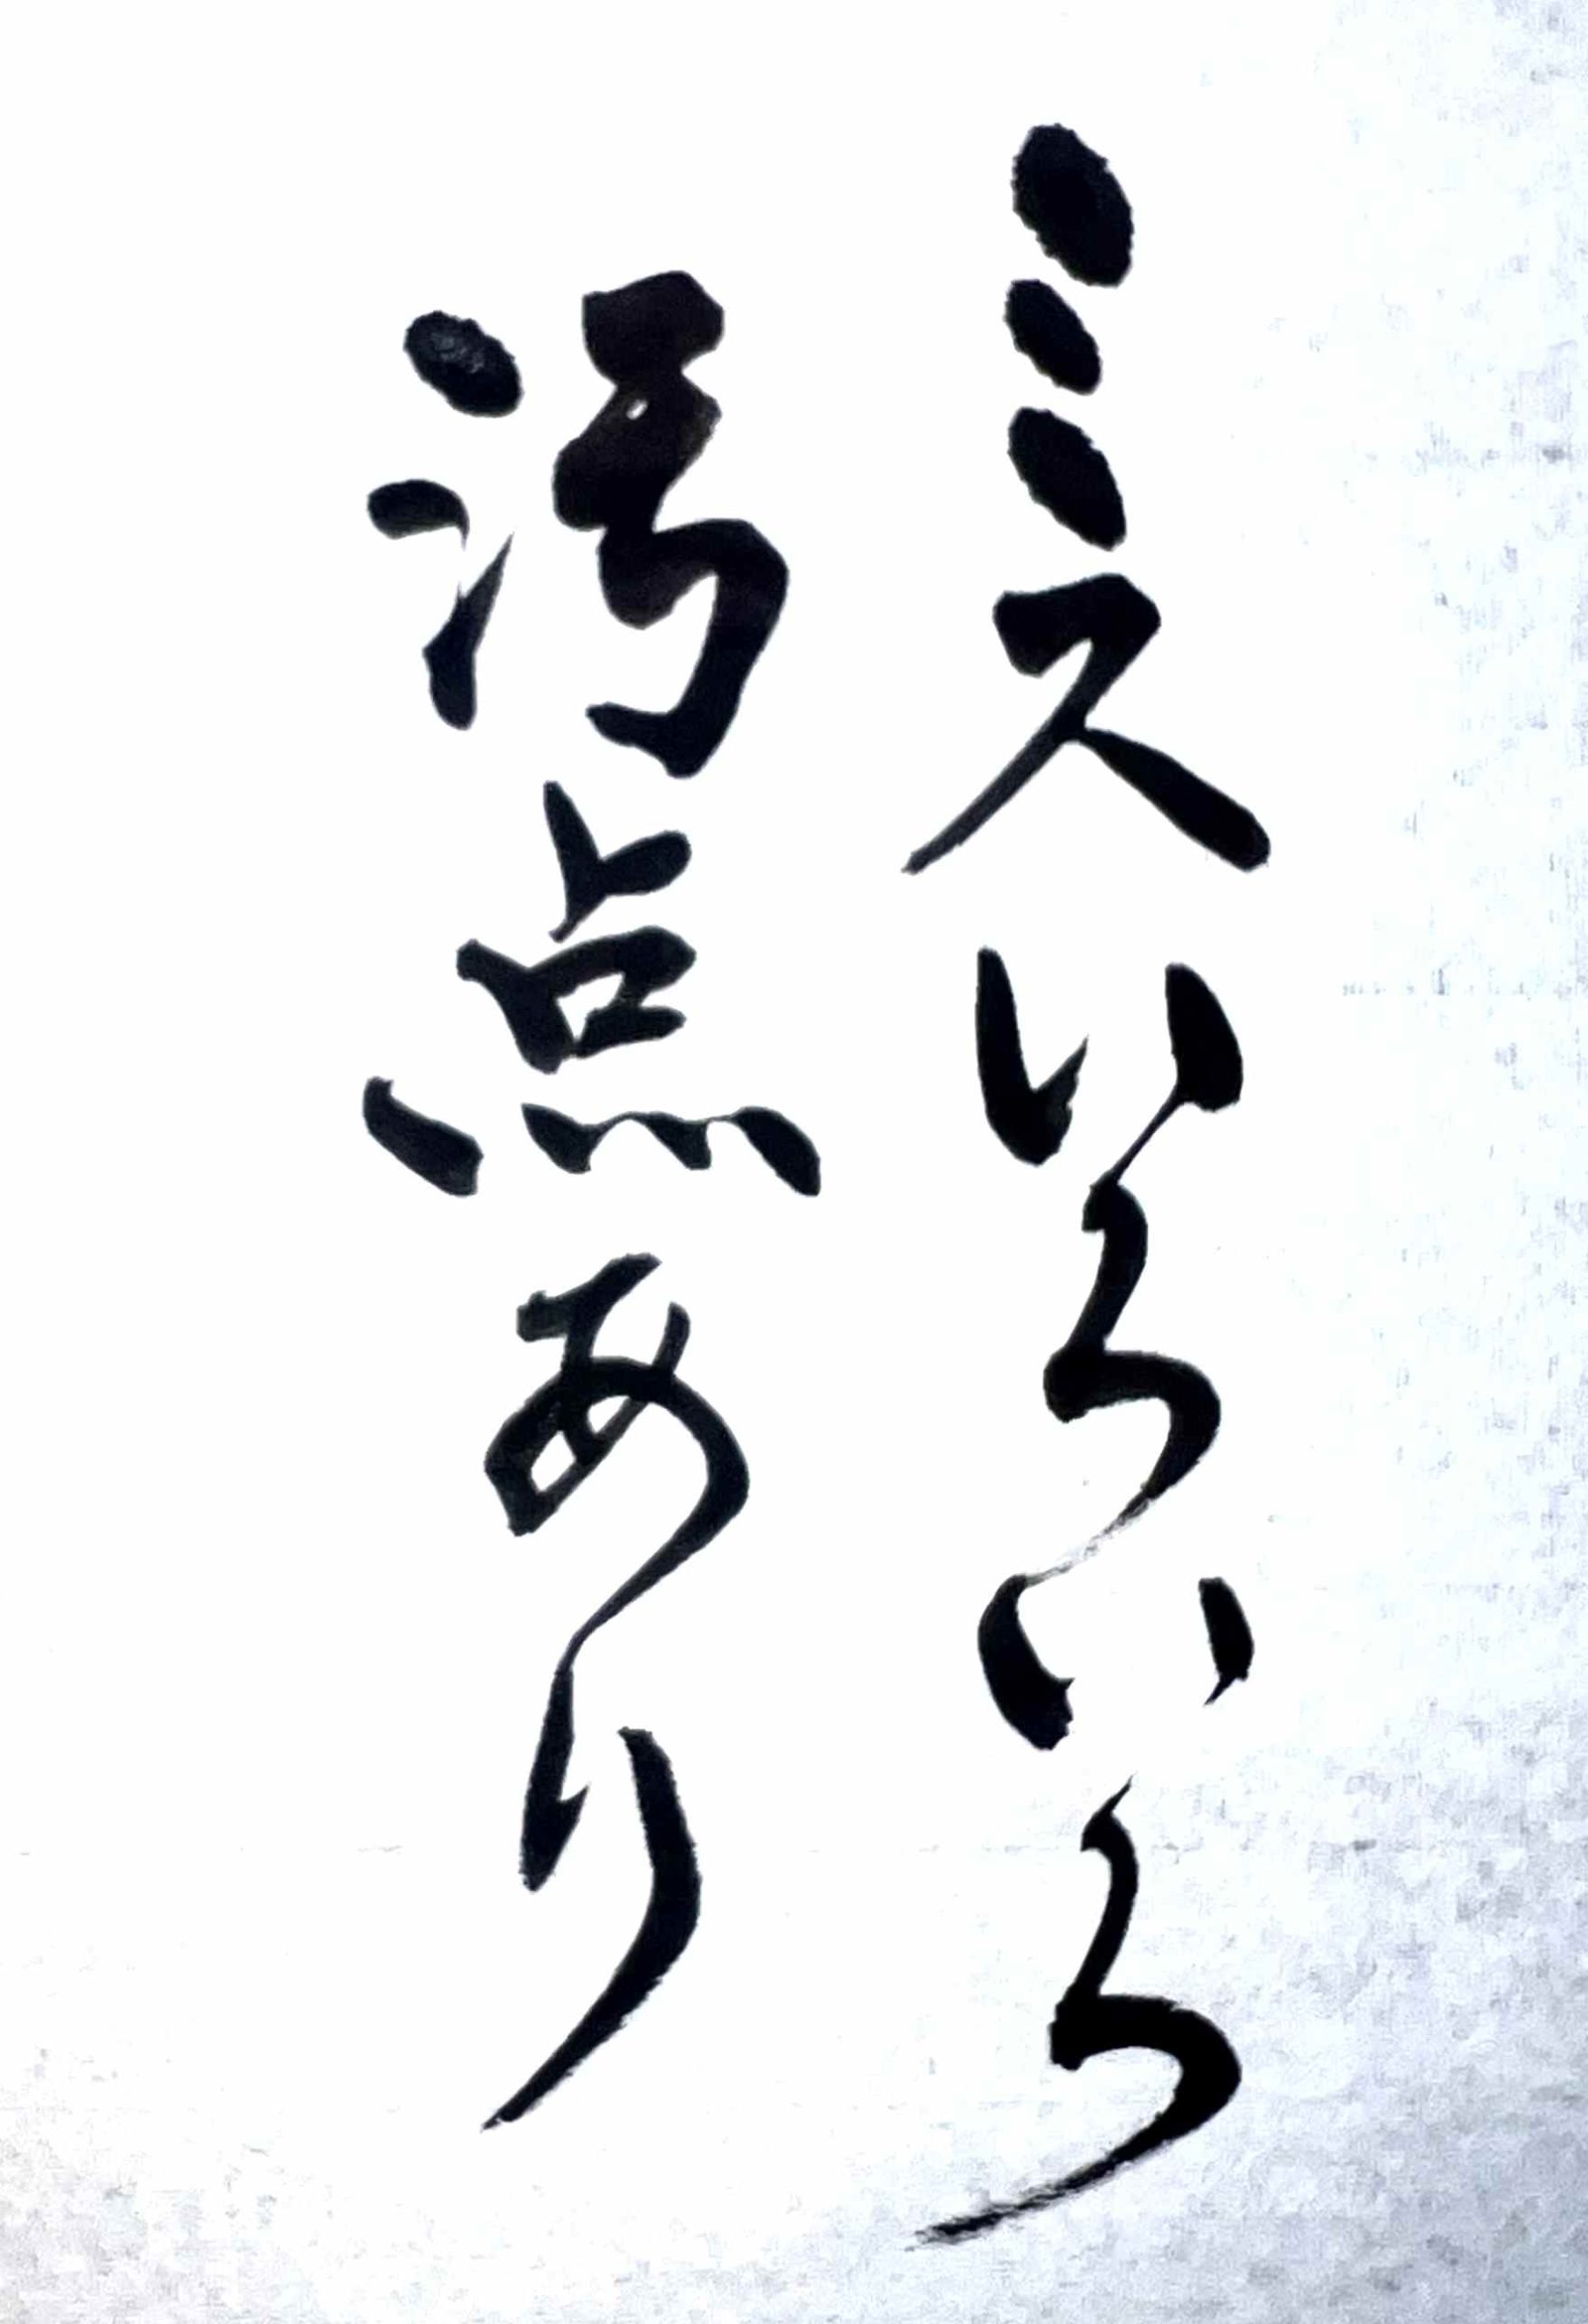 ミスいろいろ
汚点あり